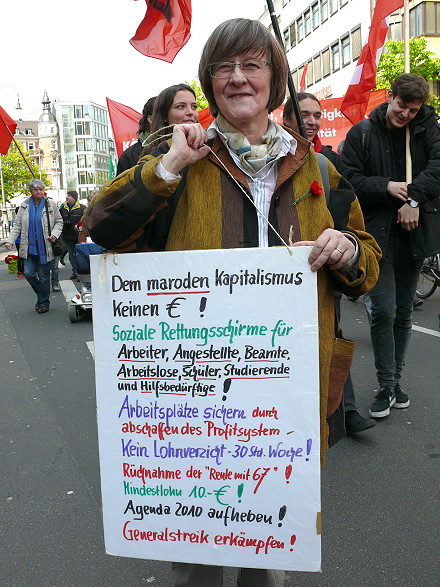 Dem maroden Kapitalismus
Keinen € !
Soziale Rettungsschirme für
Arbeiter, Angestellte, Beamte,
Arbeitslose, Schüler, Studierende
und Hilfsbedürftige !
Arbeitsplätze sichern durch
abschaffen des Profitsystem -
Kein Lohnverzicht - 30 Std. Woche !
Rücknahme der "Rente mit 67" !
Mindestlohn 10.-€ !
Agenda 2010 aufheben !
Generalstreik erkämpfen !